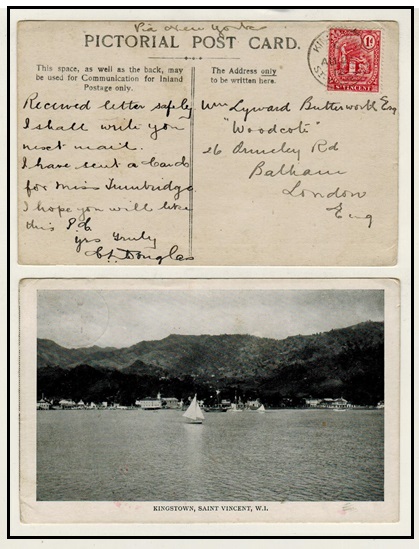 Via New York
PICTORIAL POST CARD.
This space, as well as the back, may
be used for Communication for Inland
Postage only.
The Address only
to be written here.
KING
ST
1d
ST VINCENT
Received letter safely
I shall write you
next mail.
I have sent a Card
for Miss Tunbridge
I hope you will like
this P.C
yrs truly
Douglas
Wm Lyward Butterworth Esq
"Woodcote"
26 Rd
Balham
London
Eng
KINGSTOWN, SAINT VINCENT, W.I.